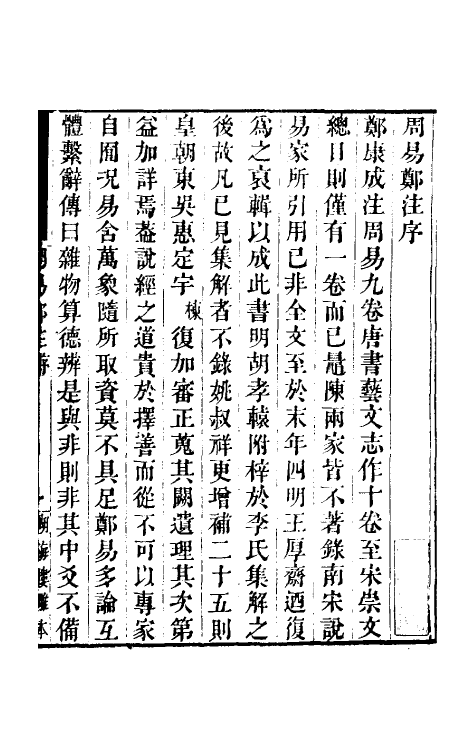 周易鄭注序
鄭康成注周易九卷唐書藝文志作十卷至宋崇文
總目則僅有一卷而已晁陳兩家皆不著錄南宋說
易家所引用已非全文至於末年四明王厚齋迺復
爲之裒輯以成此書明胡孝轅附梓於李氏集解之
後故凡已見集解者不錄姚叔祥更增補二十五則
皇朝東吳惠定宇棟復加審正蒐其闕遺理其次第
益加詳焉葢說經之道貴於擇善而從不可以專家
自囿况易含萬象隨所取資莫不具足鄭易多論互
體繫辭傳曰雜物算德辨是與非則非其中爻不備
周易鄭注序
一
湖海樓雕本